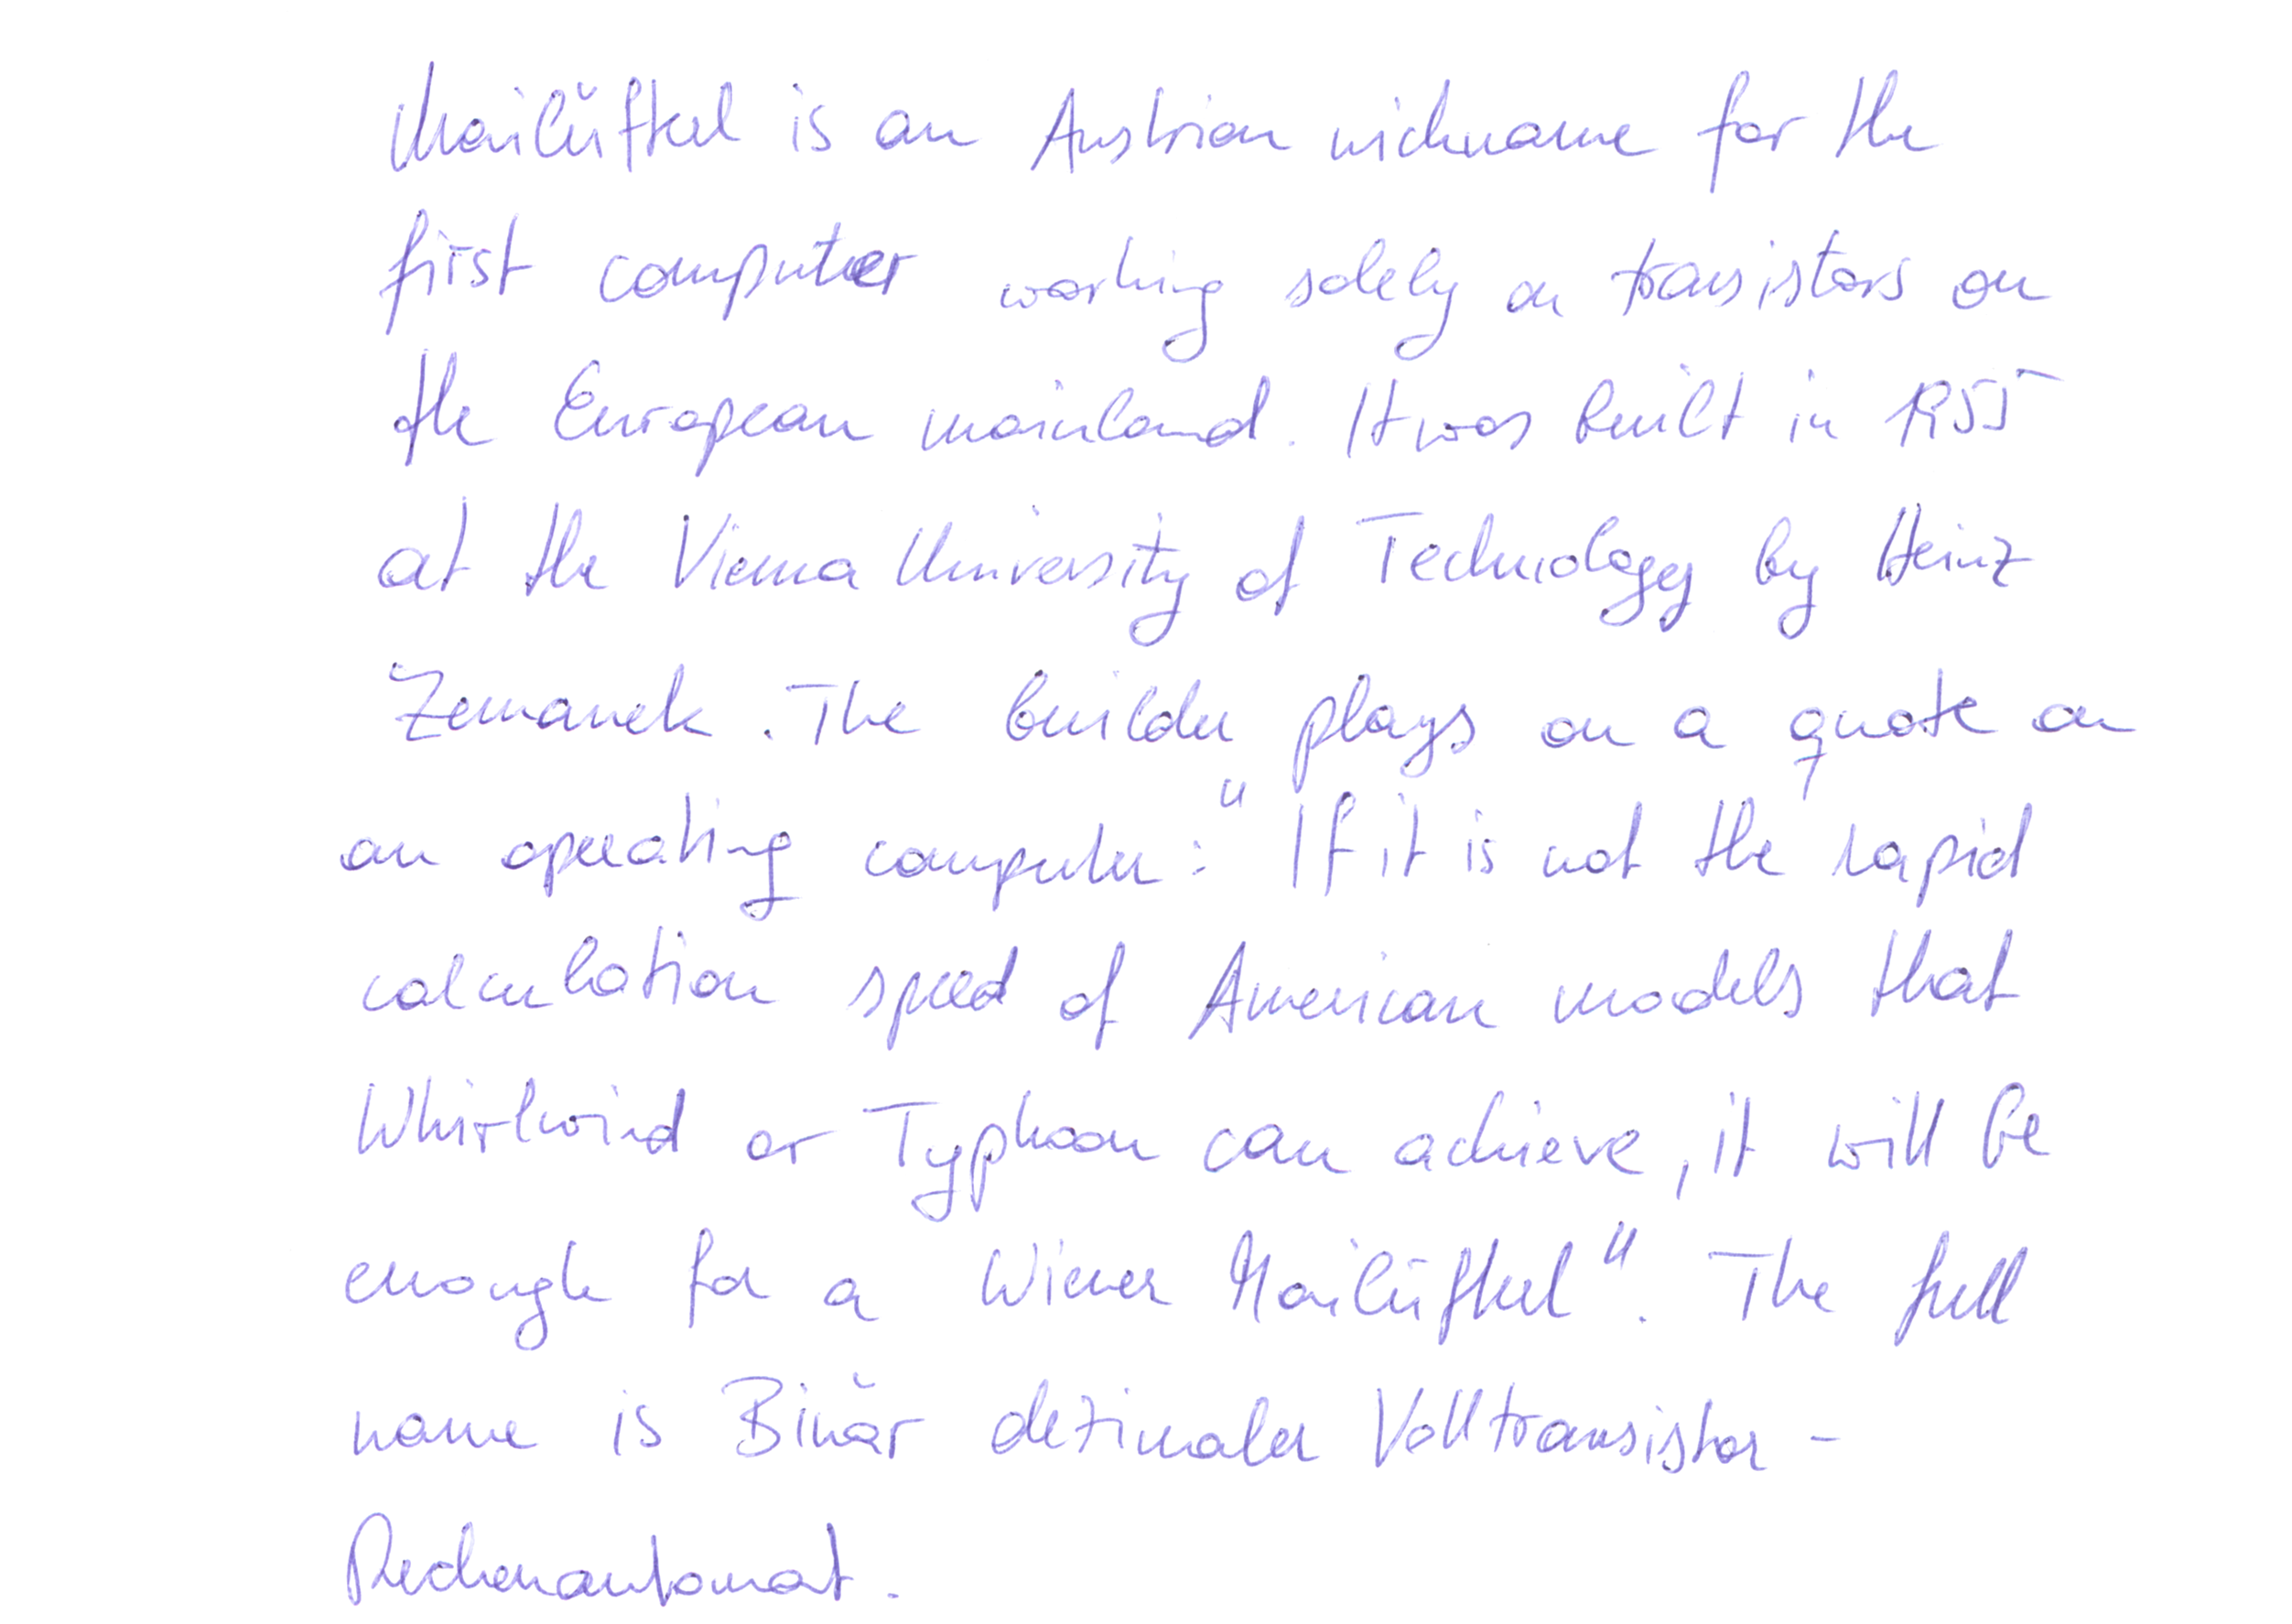 Mailüfterl is an Austrian nickname for the
first computer working solely on transistors on
the European mainland. It was built in 1955
at the Vienna University of Technology by Heinz
Zemanek. The builder plays on a quote on
an operating computer: "If it is not the rapid
calculation speed of American models that
Whirlwind or Typhoon can achieve, it will be
enough for a Wiener Mailüfterl". The full
name is Binär dezimaler Volltransistor-
Rechenautomat.